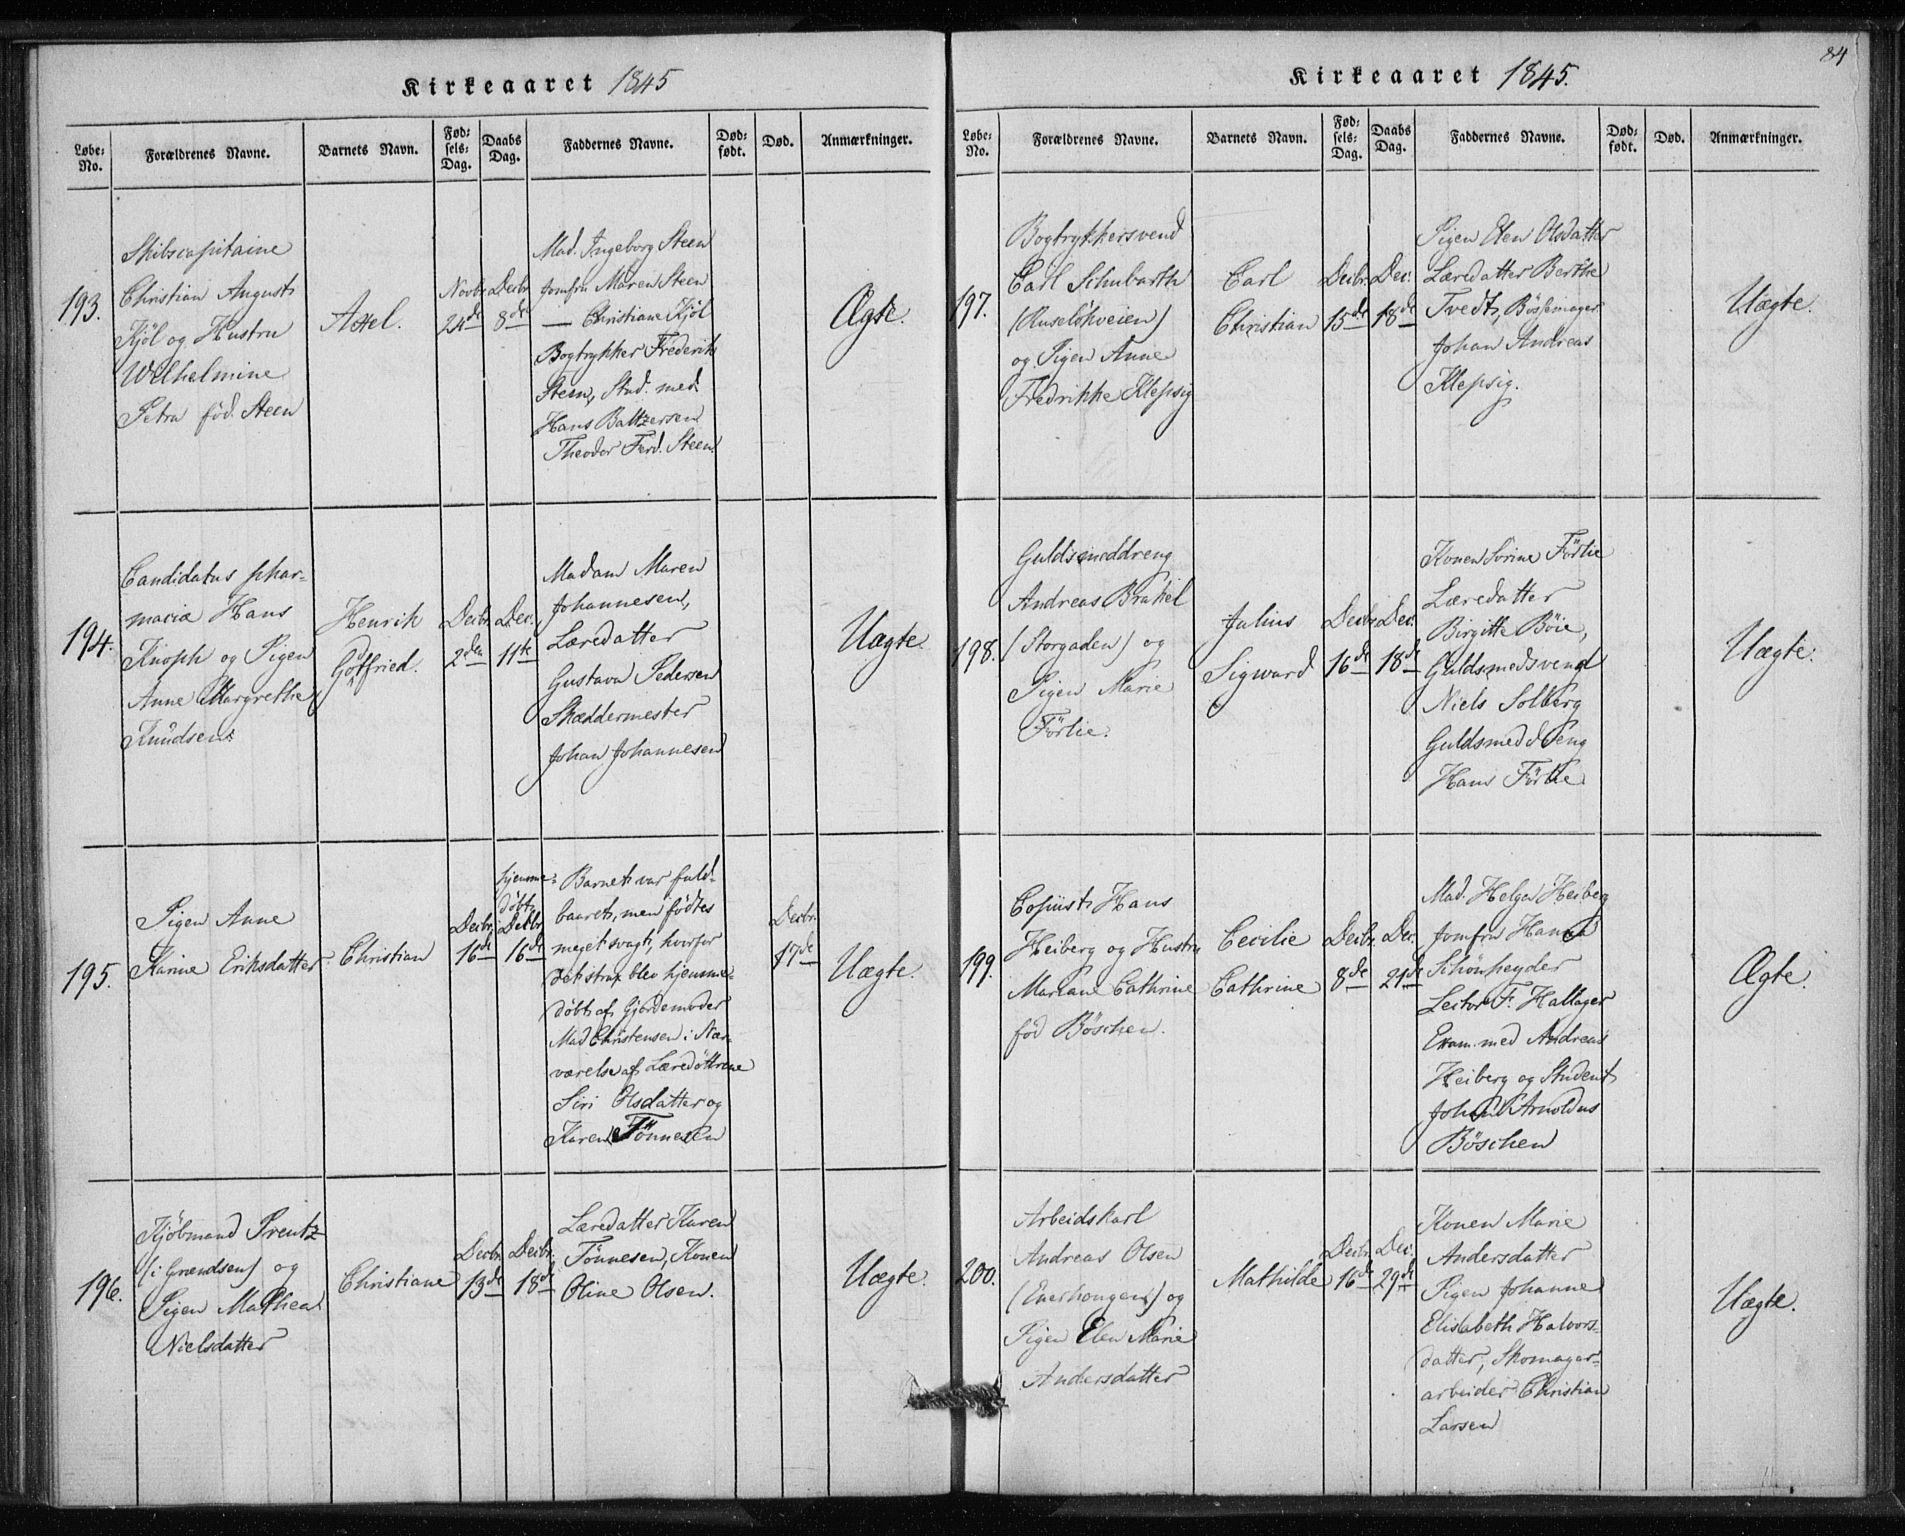 Kirkeaaret 1845
Løbe-No. Forældrenes Navne. Barnets Navn. Fødsels-Dag. Daabs Dag. Faddernes Navne. Dødfødt. Død. Anmærkninger.
193.
Skibscapitaine
Christian August
Kjöl og Hustru
Wilhelmine
Petra föd. Steen
Axel.
Novbr.
24de
Decbr.
8de
Mad. Ingeborg Steen
Jomfru Maren Steen
— Christiane Kjöl
Bogtrykker Frederik
Steen, Stud. med.
Hans Baltzersen
Theodor Ferd. Steen.
Ægte.
194.
Candidatus phar-
maciæ Hans
Knoph og Pigen
Anne Margrethe
Knudsen.
Henrik
Gotfried.
Decbr.
2den
Dec.
11te
Madam Maren
Johannesen,
Læredatter
Gustava Pedersen
Skræddermester
Johan Johannesen
Uægte.
195.
Pigen Anne
Karine Eriksdatter
Christian
Decbr.
16de
hjemme-
döbt
Decbr.
16de
Barnet var fuld-
baaret, men födtes
meget svagt, hvorfor
det strax blev hjemme-
döbt af Gjordemoder
Mad Christensen i Nær-
værelse af Læredöttrene
Siri Olsdatter og
Karen Tönnesen
Decbr.
17de
Uægte.
196.
Kjöbmand Prentz
(i Grændsen) og
Pigen Mathea
Nielsdatter
Christiane
Decbr.
13de
Decbr.
18de
Læredatter Karen
Tönnesen, Konen
Oline Olsen.
Uægte.
84
Kirkeaaret 1845.
Løbe-No. Forældrenes Navne. Barnets Navn. Fødsels-Dag. Daabs Dag. Faddernes Navne. Dødfødt. Død. Anmærkninger.
197.
Bogtrykkersvend
Carl Schubarth
(Ruselökveien)
og Pigen Anne
Fredrikke Klepsig
Carl
Christian
Decbr.
15de
Dec.
18de
Pigen Elen Olsdatter
Læredatter Berthe
Tvedt, Bössemager
Johan Andreas
Klepsig.
Uægte.
198.
Guldsmeddreng
Andreas Brakel
(Storgaden) og
Pigen Marie
Förlie.
Julius
Sigward
Decbr.
16de
Dec.
18de
Konen Sorine Förlie
Læredatter
Birgitte Böie,
Guldsmedsvend
Niels Solberg
Guldsmeddreng
Hans Förlie
Uægte.
199.
Copiist Hans
Heiberg og Hustru
Mariane Cathrine
föd Böschen.
Cecilie
Cathrine
Decbr.
8de
Dec.
21de
Mad. Helga Heiberg
Jomfru Hanna
Schönheyder
Lector F. Hallager
Exam. med Andreas
Heiberg og Student
Johan Arnoldus
Böschen
Ægte.
200.
Arbeidskarl
Andreas Olsen
(Enerhougen) og
Pigen Elen Marie
Andersdatter
Mathilde
Decbr.
16de
Dec.
29de
Konen Marie
Andersdatter
Pigen Johanne
Elisabeth Halvors-
datter, Skomager-
arbeider Christian
Larsen
Uægte.